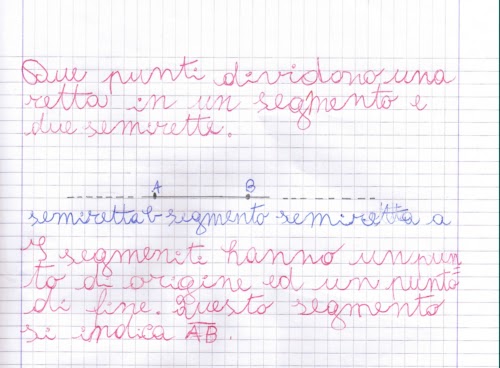 Due punti dividono una
retta in un segmento e
due semirette.
A B
semiretta b segmento semiretta a
I segmeniti hanno un pun
to di origine ed un punto
di fine. Questo segmento
si indica A̅B̅.